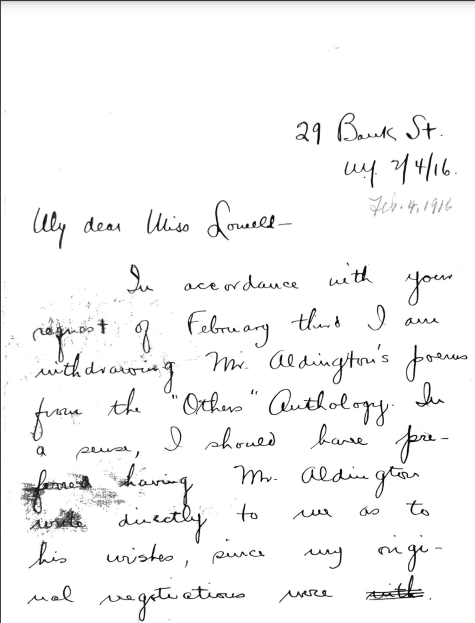 29 Bank St.
N.Y. 2/4/16.
Feb. 4, 1916
My dear Miss Lowell—
In accordance with your
request of February third I am
withdrawing Mr. Aldington's poems
from the "Others" Anthology. In
a sense, I should have pre-
ferred having Mr. Aldington
write directly to me as to
his wishes, since my origi-
nal negotiations were with.